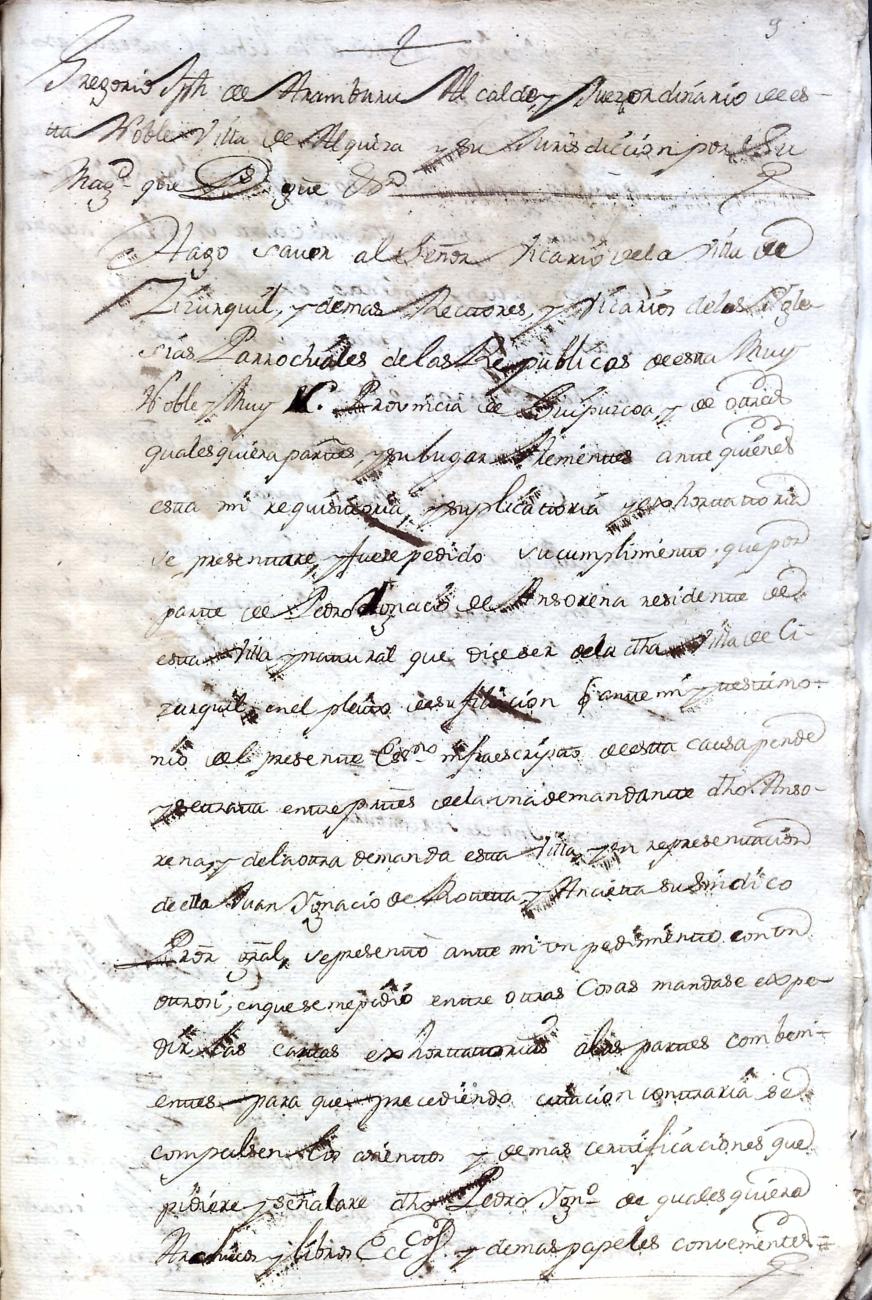 9
Gregorio Jph de Aramburu Alcalde, y Juez ordinario de es-
tta Noble Villa de Alquiza y su Jurisdicion por Su
Magd. que Ds gue &ra
Hago saver al Señor Vicario de la Villa de
Zizurquil, y demas Rectores, y Vicarios de las Ygle-
sias Parrochiales de las Republicas de estta Muy
Noble y Muy L. Provincia de Guipuzcoa, y de otras
qualesquiera parttes, y sus lugar thenienttes antte quienes
estta mi requisittoria y suplicattoria y exhorttattoria
se presenttare, y fuere pedido su cumplimientto, que por
partte de Pedro Ygnacio de Ansorena residentte de
estta Villa y natural que dice ser de la dha Villa de Ci-
zurquil, en el pleitto de su filiacion q antte mi y testtimo-
nio del presentte Essno infraescriptto de estta causa pende
y se tratta enttre parttes de la una demandantte dho Anso-
rena, y de la otra demanda estta Villa, y en representtacion
de ella Juan Ygnacio de Rotetta y Ancietta su Sindico
Pror gral, se presentto antte mi un pedimientto con un
ottrosi, en que se me pidio enttre ottras Cosas mandase expe-
dir las carttas exhorttattorias a las parttes combeni-
enttes para que precediendo cittacion conttraria se
compulsen los asienttos y demas certtificaciones que
pidiere y señalare dho Pedro Ygno de qualesquiera
Archivos y libros Ecccos y demas papeles convenienttes =